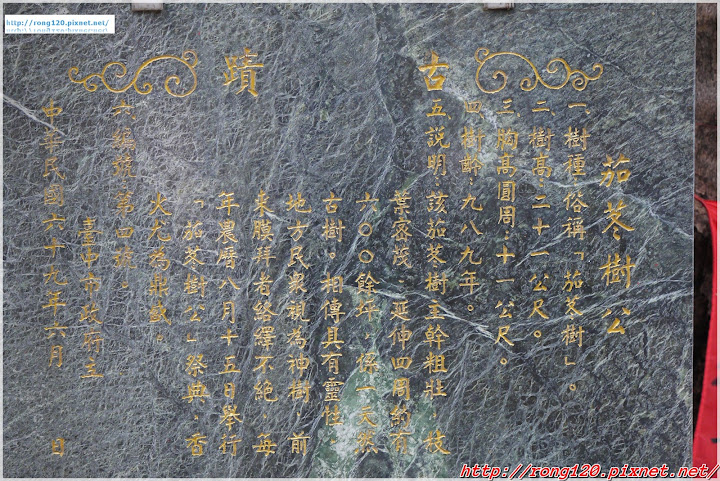 http://rong120.pixnet.net/
古蹟
茄苳樹公
一、樹種:俗稱「茄苳樹」。
二、樹高:二十一公尺。
三、胸高圓周:十一公尺。
四、樹齡:九八九年。
五、說明:該茄苳樹主幹粗壯,枝
葉密茂,延伸四周約有
六○○餘坪,係一天然
古樹。相傳具有靈性,
地方民眾視為神樹,前
來膜拜者絡繹不絕,每
年農曆八月十五日舉行
「茄苳樹公」祭典,香
火尤為鼎盛。
六、編號:第四號。
臺中市政府立
中華民國六十九年六月 日
http://rong120.pixnet.net/